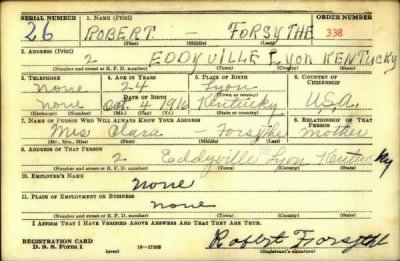 SERIAL NUMBER 1. NAME (Print) ORDER NUMBER
26 ROBERT - FORSYTHE 338
(First) (Middle) (Last)
2. ADDRESS (Print)
2 EDDYVILLE Lyon KENTUCKY
(Number and street or R. F. D. number) (Town) (County) (State)
3. TELEPHONE 4. AGE IN YEARS 5. PLACE OF BIRTH 6. COUNTRY OF CITIZENSHIP
none 24 Lyon
DATE OF BIRTH (Town or county)
none Oct 4 1916 Kentucky U.S.A.
(Exchange) (Number) (Mo.) (Day) (Yr.) (State or country)
7. NAME OF PERSON WHO WILL ALWAYS KNOW YOUR ADDRESS 8. RELATIONSHIP OF THAT PERSON
Mrs Clara - Forsythe Mother
(Mr., Mrs., Miss) (First) (Middle) (Last)
9. ADDRESS OF THAT PERSON
2 Eddyville Lyon Kentucky
(Number and street or R. F. D. number) (Town) (County) (State)
10. EMPLOYER'S NAME
none
11. PLACE OF EMPLOYMENT OR BUSINESS
none
(Number and street or R. F. D. number) (Town) (County) (State)
I AFFIRM THAT I HAVE VERIFIED ABOVE ANSWERS AND THAT THEY ARE TRUE.
REGISTRATION CARD
D. S. S. Form 1 16-17105 Robert Forsythe
(Registrant's signature)